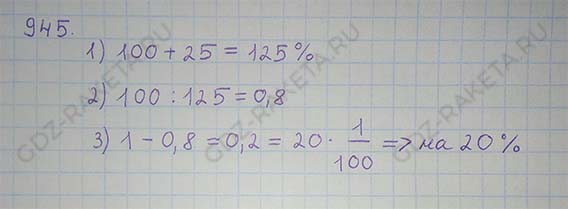 945.
1) 100 + 25 = 125 %
2) 100 : 125 = 0,8
3) 1 - 0,8 = 0,2 = 20 · 1/100 => на 20 %
GDZ-RAKETA.RU
GDZ-RAKETA.RU
GDZ-RAKETA.RU
GDZ-RAKETA.RU